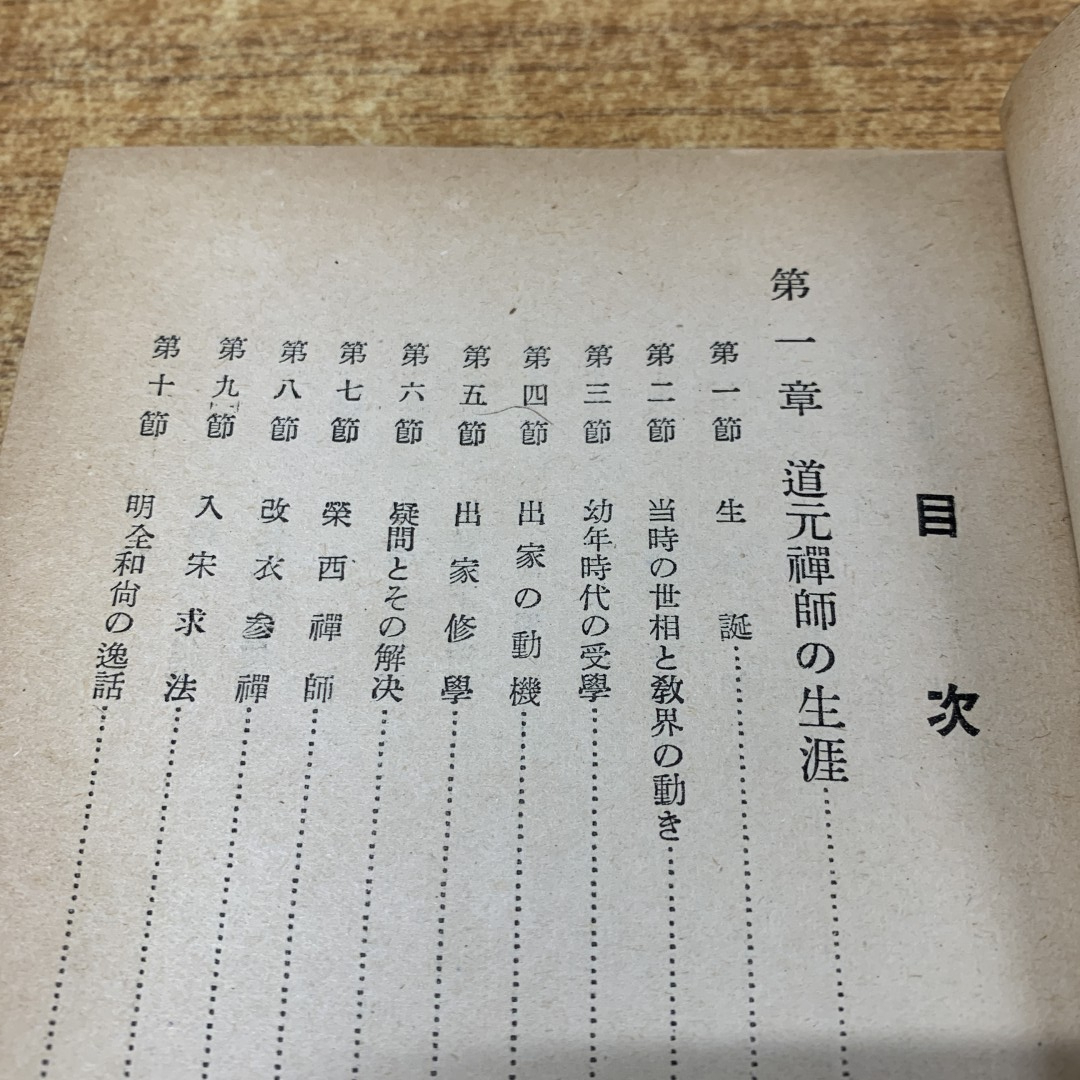 目次
第一章 道元禪師の生涯
第一節 生誕
第二節 当時の世相と敎界の動き
第三節 幼年時代の受學
第四節 出家の動機
第五節 出家修學
第六節 疑問とその解决
第七節 榮西禪師
第八節 改衣参禪
第九節 入宋求法
第十節 明全和尙の逸話